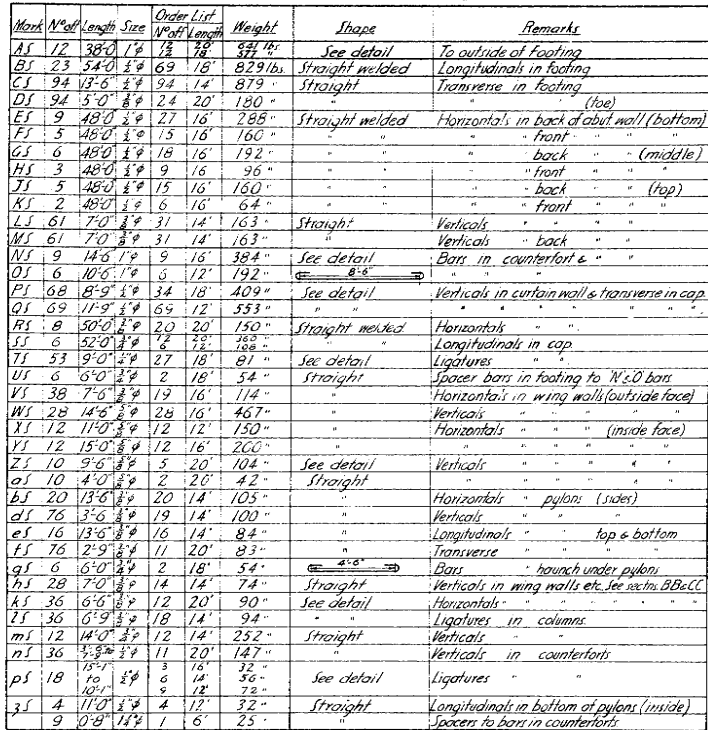 Mark NºOff Length Size Order List NºOff Length Weight Shape Remarks
AS 12 38'-0" 1"φ 12 20' 641 lbs.
12 18' 577 " See detail To outside of footing
BS 23 54'-0" ½"φ 69 18' 829 lbs. Straight welded Longitudinals in footing
CS 94 13'-6" ½"φ 94 14' 879 " Straight Transverse in footing
DS 94 5'-0" ⅜"φ 24 20' 180 " " " " " (toe)
ES 9 48'-0" ½"φ 27 16' 288 " Straight welded Horizontals in back of abut wall (bottom)
FS 5 48'-0" ½"φ 15 16' 160 " " " " " front " "
GS 6 48'-0" ½"φ 18 16' 192 " " " " " back " " (middle)
HS 3 48'-0" ½"φ 9 16 96 " " " " " front " " "
JS 5 48'-0" ½"φ 15 16' 160 " " " " " back " " (top)
KS 2 48'-0" ½"φ 6 16' 64 " " " " " front " " "
LS 61 7'-0" ⅜"φ 31 14' 163 " Straight Verticals " " " "
MS 61 7'-0" ⅜"φ 31 14' 163 " " Verticals " back " "
NS 9 14'-6 1"φ 9 16' 384 " See detail Bars in counterfort & " "
OS 6 10'-6 1"φ 6 12' 192 " 8'-6" " " " "
PS 68 8'-9" ½"φ 34 18' 409 " See detail Verticals in curtain wall & transverse in cap.
QS 69 11'-9" ½"φ 69 12' 553 " " " " " " " " " "
RS 8 50'-0" ⅜"φ 20 20' 150 " Straight welded Horizontals " "
SS 6 52'-0" ¾"φ 12 20' 360 "
6 12' 108 " " " Longitudinals in cap.
TS 53 9'-0" ¼"φ 27 18' 81 " See detail Ligatures " "
US 6 6'-0" ¾"φ 2 18' 54 " Straight Spacer bars in footing to 'N' & 'O' bars
VS 38 7'-6" ⅜"φ 19 16' 114 " " Horizontals in wing walls (outside face)
WS 28 14'-6" ⅝"φ 28 16' 467 " " Verticals " " " " "
XS 12 11'-0" ⅝"φ 12 12' 150 " " Horizontals " " " (inside face)
YS 12 15'-0" ⅝"φ 12 16' 200 " " " " " " " "
ZS 10 9'-6" ⅝"φ 5 20' 104 " See detail Verticals " " " " "
aS 10 4'-0" ⅝"φ 2 20' 42 " Straight " " " " " "
bS 20 13'-6" ⅜"φ 20 14' 105 " " Horizontals " pylons (sides)
dS 76 3'-6" ⅜"φ 19 14' 100 " " Verticals " " "
eS 16 13'-6" ⅜"φ 16 14' 84 " " Longitudinals " " top & bottom
fS 76 2'-9" ⅜"φ 11 20' 83 " " Transverse " " " "
gS 6 6'-0" ¾"φ 2 18' 54 " 4'-6" Bars " haunch under pylons
hS 28 7'-0" ⅜"φ 14 14' 74 " Straight Verticals in wing walls etc. See sectns. BB & CC
kS 36 6'-6" ⅜"φ 12 20' 90 " See detail Horizontals " " " " " " "
lS 36 6'-9" ⅜"φ 18 14' 94 " " Ligatures in columns.
mS 12 14'-0" ¾"φ 12 14' 252 " Straight Verticals " "
nS 36 ½"φ 11 20' 147 " " Verticals in counterforts
pS 18 15'-1" to 10'-1" ½"φ 3 16' 32 "
6 14' 56 " See detail Ligatures " "
9 12' 72 "
3S 4 11'-0" ½"φ 4 12' 32 " Straight Longitudinals in bottom of pylons (inside)
9 0'-8" 1 6' 25 " " Spacers to bars in counterforts